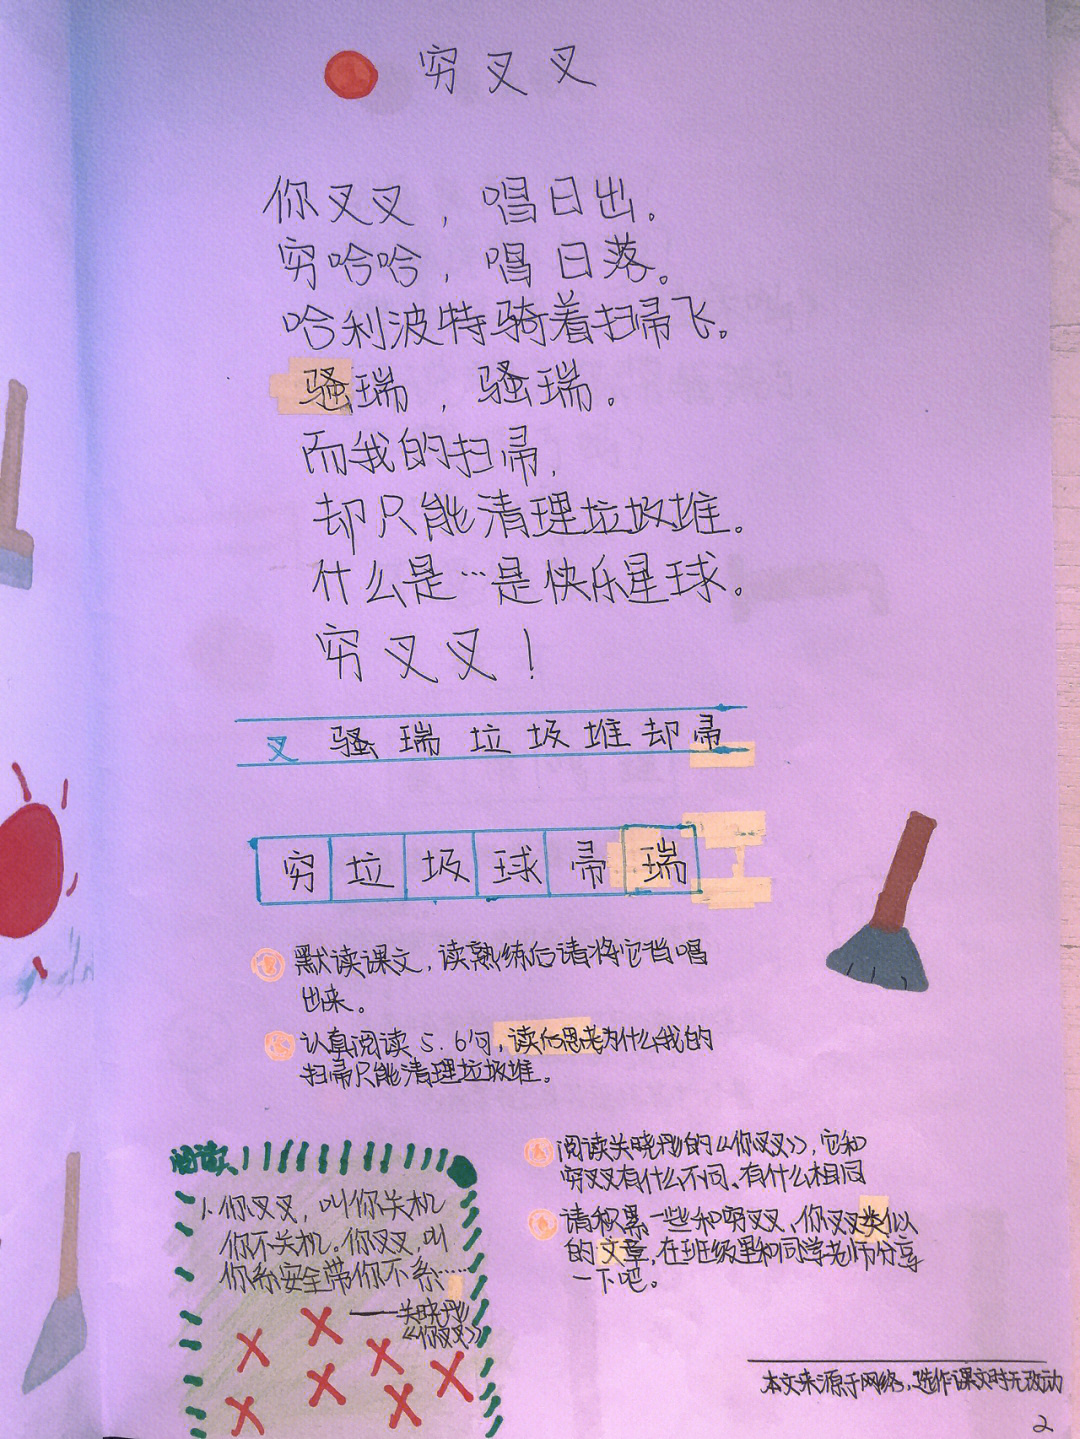 穷叉叉
你叉叉，唱日出。
穷哈哈，唱日落。
哈利波特骑着扫帚飞。
骚瑞，骚瑞。
而我的扫帚，
却只能清理垃圾堆。
什么是…是快乐星球。
穷叉叉！
叉 骚 瑞 垃 圾 堆 却 帚
穷 垃 圾 球 帚 瑞
默读课文，读熟练后请将它唱
出来。
认真阅读5.6句，读后思考为什么我的
扫帚只能清理垃圾堆。
阅读
1、你叉叉，叫你关机
你不关机。你叉叉，叫
你系安全带你不系……
——关晓彤
《你叉叉》
阅读关晓彤的《你叉叉》，它和
穷叉叉有什么不同、有什么相同
请积累一些和穷叉叉、你叉叉类似
的文章，在班级里和同学老师分享
一下吧。
本文来源于网络，选作课文时无改动
2